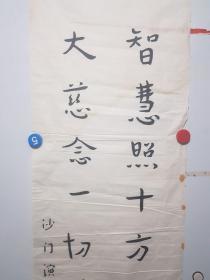 智慧照十方
大慈念一切
沙门演
5